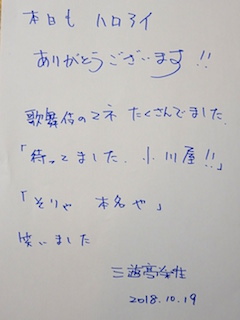 本日も ハロアイ
ありがとうございます!!
歌舞伎のマネ たくさんでました.
「待ってました. 小川屋!!」
「そりゃ 本名や」
笑いました
三遊亭
2018.10.19